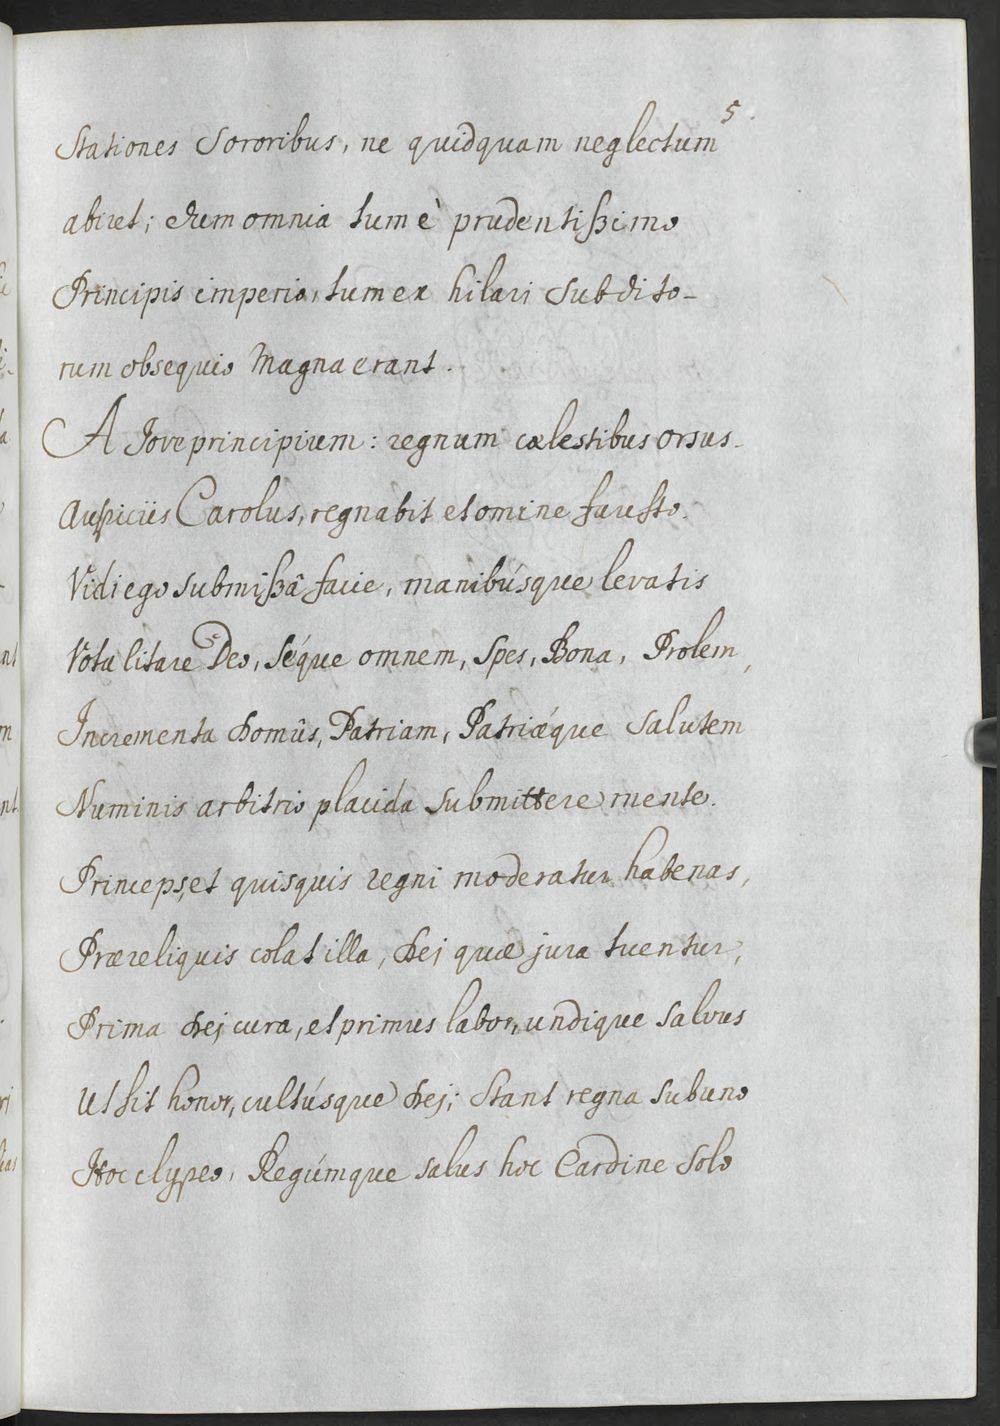 5.
Stationes Sororibus, ne quidquam neglectum
abiret; dum omnia tum è prudentißimo
Principis imperio, tum ex hilari Subdito-
rum obsequio Magna erant.
A Jove principium: regnum cælestibus orsus
Auspiciis Carolus, regnabit et omine fausto.
Vidi ego submißâ facie, manibúsque levatis
Vota litare Deo, Séque omnem, Spes, Bona, Prolem,
Incrementa domûs, Patriam, Patriǽque Salutem
Numinis arbitrio placida submittere mente.
Princeps, et quisquis regni moderatur habenas,
Præ reliquis colat illa, Dej quæ jura tuentur,
Prima Dej cura, et primus labor, undique Salvus
Ut sit honor, cultúsque Dej; Stant regna sub uno
Hoc clypeo, Regúmque salus hoc Cardine Solo